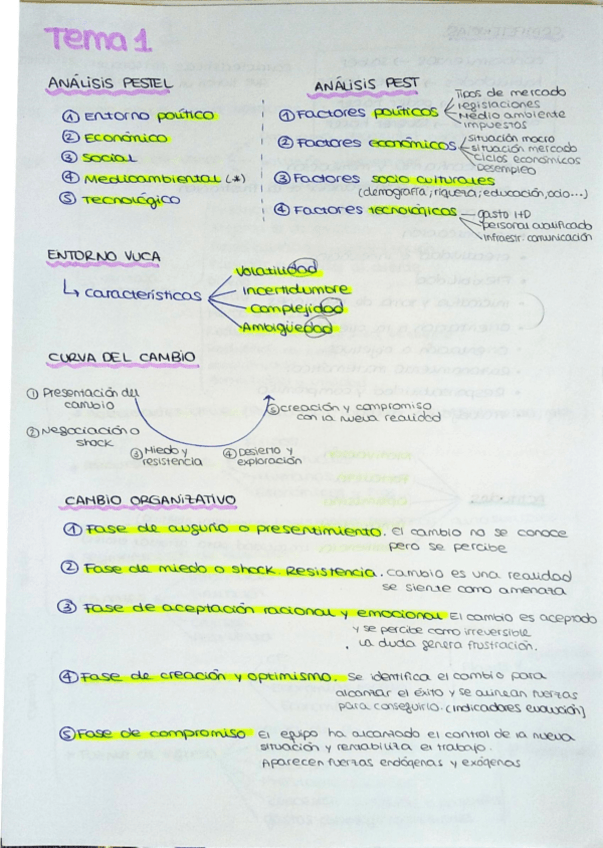 Tema 1
ANÁLISIS PESTEL
① Entorno político
② Económico
③ Social
④ Medioambiental (*)
⑤ Tecnológico
ANÁLISIS PEST
① Factores políticos
Tipos de mercado
legislaciones
Medio ambiente
impuestos
② Factores económicos
situación macro
situación mercado
Ciclos económicos
Desempleo
③ Factores socio culturales
(demografía; riqueza; educación, ocio...)
④ Factores tecnológicos
gasto I+D
personal cualificado
infraestr. comunicación
ENTORNO VUCA
características
Volatilidad
incertidumbre
Complejidad
Ambigüedad
CURVA DEL CAMBIO
① Presentación del
cambio
② Negociación o
shock
③ Miedo y
resistencia
④ Desierto y
exploración
⑤ creación y compromiso
con la nueva realidad
CAMBIO ORGANIZATIVO
① Fase de augurio o presentimiento. El cambio no se conoce
pero se percibe
② Fase de miedo o shock Resistencia. Cambio es una realidad
se siente como amenaza
③ Fase de aceptación racional y emocional El cambio es aceptado
y se percibe como irreversible
. La duda genera frustración.
④ Fase de creación y optimismo. Se identifica el cambio para
alcanzar el éxito y se alinean fuerzas
para conseguirlo. (indicadores evolución)
⑤ Fase de compromiso El equipo ha alcanzado el control de la nueva
situación y rentabiliza el trabajo.
Aparecen fuerzas endógenas y exógenas